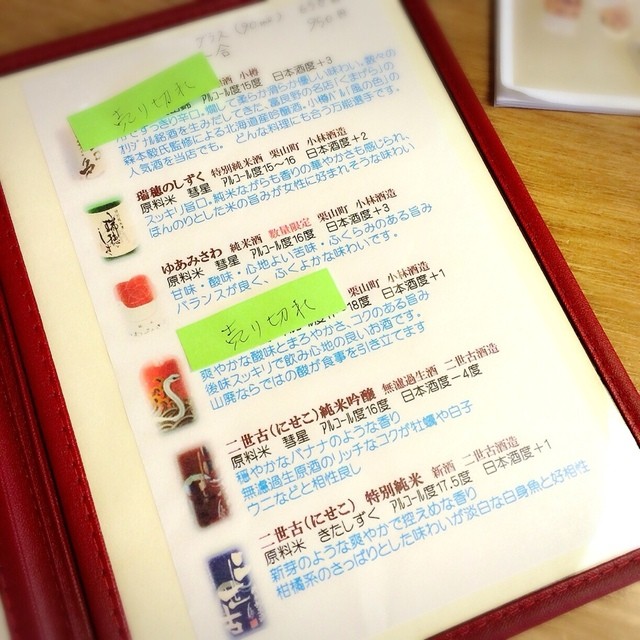 グラス(90ml)
合 950円
売り切れ
酒 小樽
アルコール度15度 日本酒度+3
ですっきり辛口。麗して柔らか滑らか優しい味わい。数々の
オリジナル銘酒を生みだしてきた、富良野の名店「くまげら」の
森本毅氏監修による北海道産吟醸酒。小樽バル「風の色」の
人気酒を当店でも。 どんな料理にも合う万能選手です。
瑞穂のしずく 特別純米酒 栗山町 小林酒造
原料米 彗星 アルコール度15～16 日本酒度+2
スッキリ旨口。純米ながらも香りの華やかさも感じられ、
ほんのりとした米の旨みが女性に好まれそうな味わい
ゆあみさわ 純米酒 数量限定 栗山町 小林酒造
原料米 彗星 アルコール度16度 日本酒度+3
甘味・酸味・心地よい苦味・ふくらみのある旨み
バランスが良く、ふくよかな味わいです。
売り切れ
栗山町 小林酒造
18度 日本酒度+1
爽やかな酸味とまろやかさ、コクのある旨み
後味スッキリで飲み心地の良いお酒です。
山廃ならではの酸が食事を引き立てます
二世古(にせこ)純米吟醸 無濾過生酒 二世古酒造
原料米 彗星 アルコール度16度 日本酒度－4度
穏やかなバナナのような香り
無濾過生原酒のリッチなコクが牡蠣や白子
ウニなどと相性良し
二世古(にせこ) 特別純米 新酒 二世古酒造
原料米 きたしずく アルコール度17.5度 日本酒度+1
新芽のような爽やかで控えめな香り
柑橘系のさっぱりとした味わいが淡白な白身魚と好相性